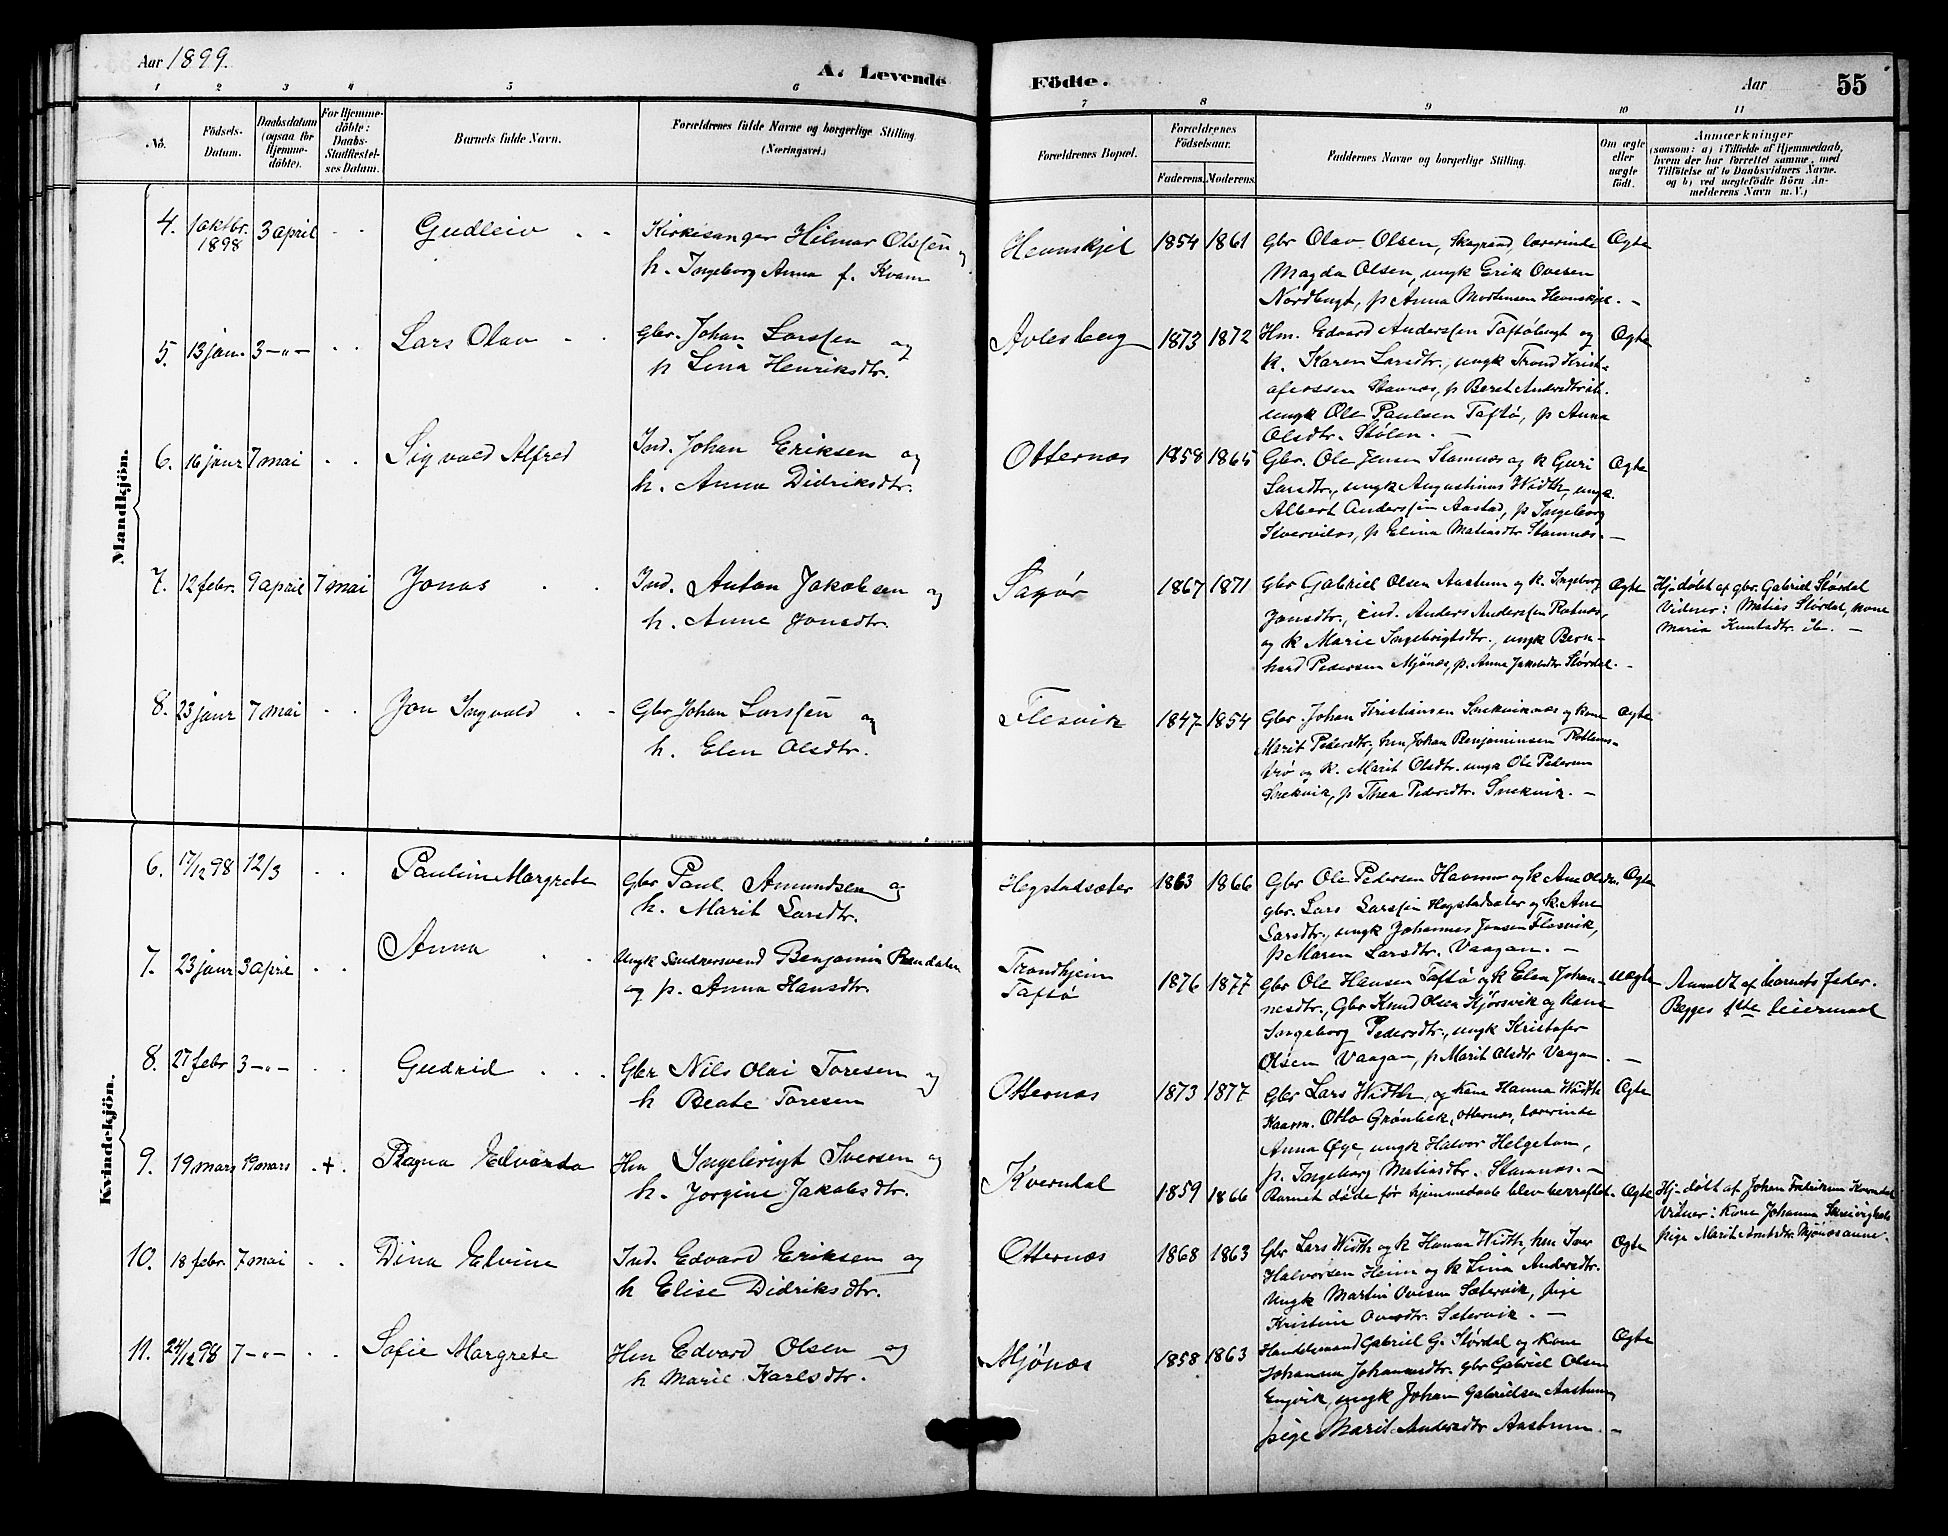 Aar 1899.
A. Levende
Födte.
Aar
55
1 2 3 4 5 6 7 8 9 10 11
No.
Födsels-
Datum.
Daabsdatum
(ogsaa for
Hjemme-
döbte).
For Hjemme-
döbte:
Daabs-
Stadfæstel-
ses Datum.
Barnets fulde Navn.
Forældrenes fulde Navne og borgerlige Stilling.
(Næringsvei.)
Forældrenes Bopæl.
Forældrenes
Födselsaar.
Faderens. Moderens.
Faddernes Navne og borgerlige Stilling.
Om ægte
eller
uægte
födt.
Anmærkninger
(saasom: a) i Tilfælde af Hjemmedaab,
hvem der har forrettet samme, med
Tilföielse af to Daabsvidners Navne.
og b) ved uægtefödte Börn An-
melderens Navn m. V.)
Mandkjön.
4. 1 oktbr. 1898 3 april - - Gudleiv - - Kirkesanger Hilmar Olssen og
h. Ingeborg Anna f. Kvam
Hevnskjel 1854 1861 Gbr Olav Olsen, Skagrand, lærerinde Ægte
Magda Olsen, ungk Erik Ovesen
Nordbugt, p Anna Mortensen Hevnskjel. -
5. 13 jan. 3 -"- - - Lars Olav - - Gbr. Johan Larssen og
h Lina Henriksdtr.
Avlesberg 1873 1872 Hm. Edvard Anderssen Taftøbugt og Ægte
k. Karen Larsdtr., ungk Trond Krist-
afersson Stamnes, p Beret Andersdtr ib.
ungk Ole Paulsen Taftø, p Anna
Olsdtr. Stølen. -
6. 16 janr 7 mai - - Sigvald Alfred Ind. Johan Eriksen og
h. Anna Didriksdtr.
Otternæs 1858 1865 Gbr. Ole Jensen Stamnæs og k Guri Ægte
Larsdtr., ungk Augustinus Width, ungk.
Albert Anderssen Aastad, p Ingeborg
, p Elina Matiasdtr Stamnæs. -
7. 12 febr. 9 april 7 mai Jonas - - Ind. Anton Jakobsen og
h. Anne Jonsdtr.
Sagør 1867 1871 Gbr Gabriel Olsen Aastum og k. Ingeborg Ægte
Jonsdtr., ind. Anders Anderssen Rotnæs,
og k Marie Ingebrigtsdtr., ungk Bern-
hard Pedersen Mjønæs, p. Anna Jakobsdtr Størdal. -
Hj. døbt af gbr. Gabriel Størdal
Vidner: Matias Størdal, kone
Maria Knutsdtr. ib. -
8. 23 janr 7 mai - - Jon Ingvald - - Gbr Johan Larssen og
h. Elen Olsdtr.
Flesvik 1847 1854 Gbr. Johan Kristiansen Snekviknæs og kone Ægte
Marit Pedersdtr, hm Johan Benjaminsen
og k. Marit Olsdtr. ungk Ole Pedersen
Snekvik, p Thea Pedersdtr. Snekvik. -
Kvindekjön.
6. 17/12 98 12/3 - - Pauline Margrete Gbr Paul Amundsen og
h. Marit Larsdtr.
Hegstadsæter 1863 1866 Gbr Ole Pedersen Havmo og k Ane Olsdtr. Ægte
gbr. Lars Larssen Hegstadsæter og k. Ane
Larsdtr., ungk Johannes Jonsen Flesvik,
p Maren Larsdtr. Vaagan. -
7. 23 janr 3 april - - Anna - - Ungk Snedkersvend Benjamin Rændalen
og p. Anna Hansdtr.
Trondhjem
Taftø
1876 1877 Gbr Ole Hansen Taftø og k Elen Johan- Uægte
nesdtr., Gbr Knud Olsen Kjørsvik og kone
Ingeborg Pedersdtr., ungk Kristofer
Olsen Vaagan, p Marit Olsdtr Vaagan. -
Anmeldt af barnets fader.
Begges 1ste leiermaal
8. 27 febr 3 -"- - - Gudrid - - - Gbr Nils Olai Toresen og
h Beate Toresen
Otternæs 1873 1877 Gbr Lars Width og kone Hanna Width Ægte
Kaarm. Otto Grønbek, Otternæs, lærerinde
Anna Øye, ungk Halvor Helgetun,
p. Ingeborg Matiasdtr. Stamnæs. -
9. 19 mars 19 mars - + - Ragna Edvarda Hm Ingebrigt Iversen og
h. Jørgine Jakobsdtr.
Kverndal 1859 1866 Barnet døde før hjemmedaab blev bekræftet. - Ægte
Hj-døbt af Johan Fredriksen Kverndal
Vidner: kone Johanna
pige Marit Arntsdtr Mjønesaune.
10. 18 febr. 7 mai - - Dina Elvine Ind. Edvard Eriksen og
h Elise Didriksdtr.
Otternæs 1868 1863 Gbr Lars Width og k Hanna Width, hm Iver Ægte
Halvorsen Heim og k Lina Andersdtr.
Ungk Martin Ovesen Sætervik, pige
Kristine Ovesdtr. Sætervik. -
11. 24/12 98 7 -"- - - Sofie Margrete Hm Edvard Olsen og
h Marie Karlsdtr.
Mjønæs 1858 1863 Handelsmand Gabriel G. Størdal og kone Ægte
Johanna Johannesdtr. gbr Gabriel Olsen
Engvik, ungk Johan Gabrielsen Aastum,
pige Marit Andersdtr Aastum. -